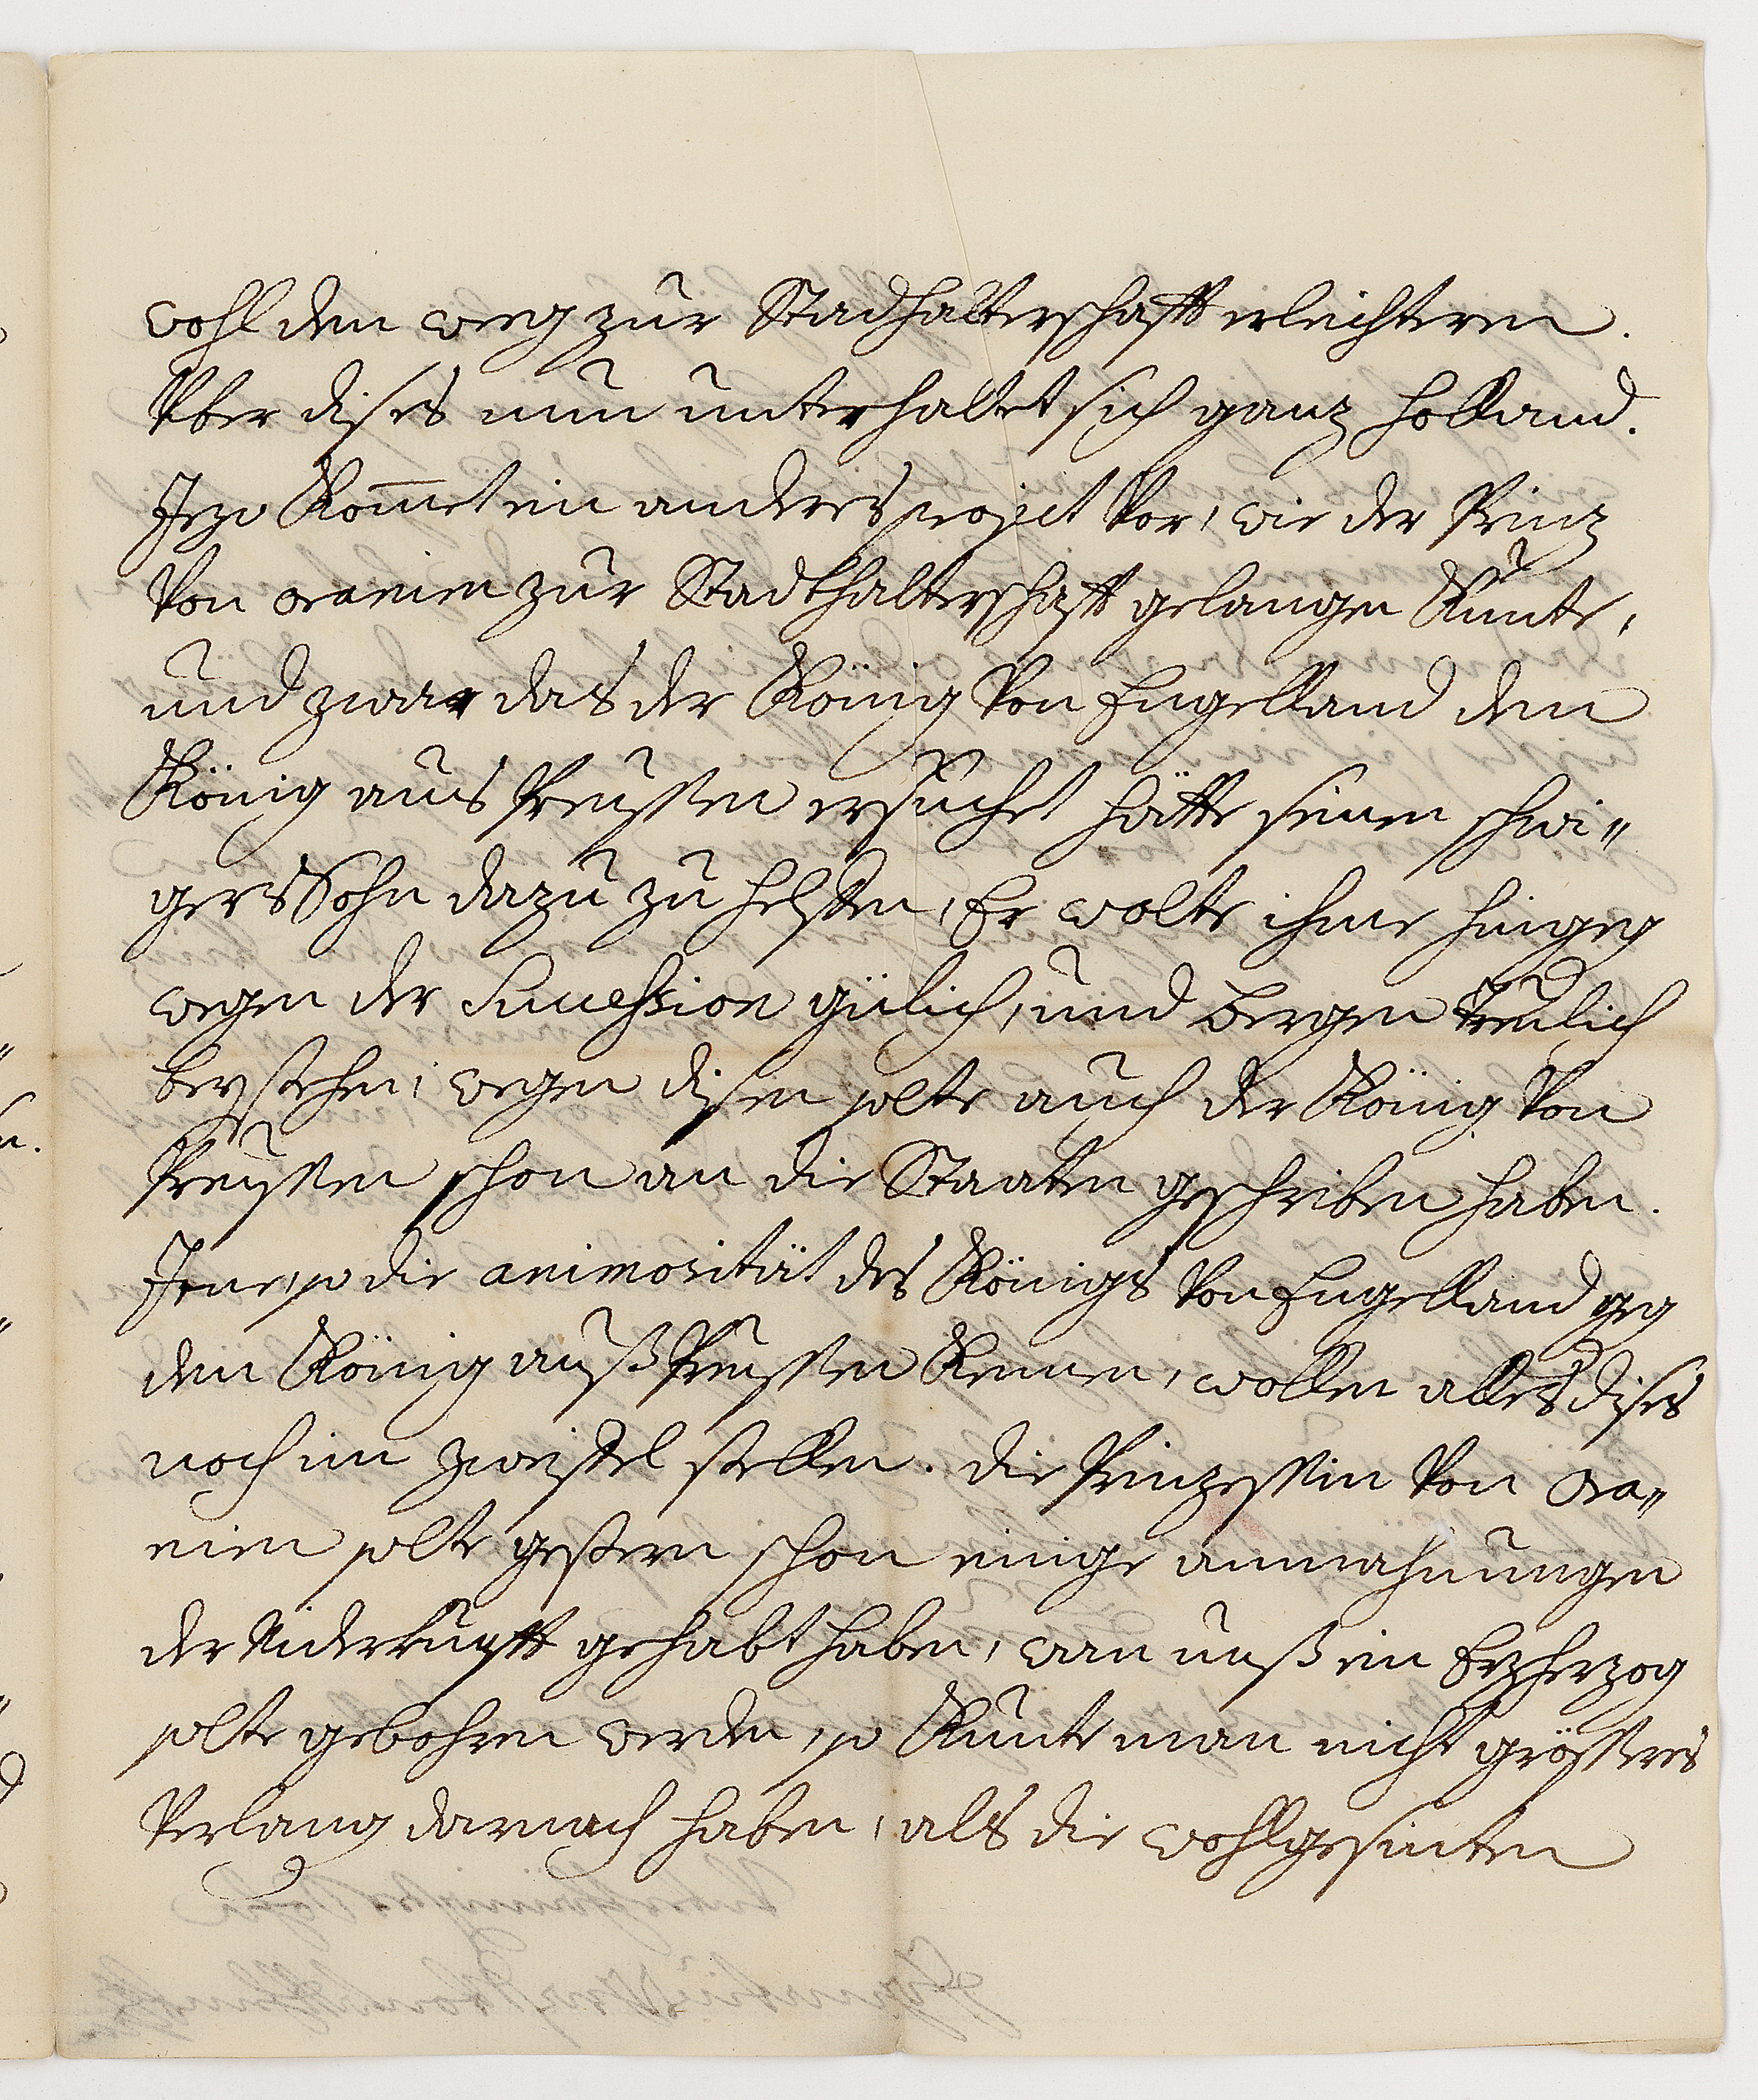 wohl den weeg zur Stadhalterschafft erleichteren.
Über dises nun unterhaltet sich ganz Holland.
Jezo Kom̄et ein anderes project Vor, wie der Prinz
Von oranien zur Stadthalterschafft gelangen Kunte,
und zwar das der König Von Engelland den
König aus Preussen ersuchet hätte seinen schwi„
gersSohn dazu zu helffen, Er wolte ihme hingeg
wegen der Succession gülich, und Bergen treulich
beystehen, wegen disen solte auch der König Von
Preussen schon an die Staaten geschriben haben.
Jene, so die animosität des Königs Von Engelland geg
den König auß Preussen Kennen, wollen alles dises
noch im zweiffel stellen. die Prinzessin Von ora„
nien solte gestern schon einige anmahnungen
der Niderkunfft gehabt haben, wan unß ein Erzherzog
solte gebohren werden, so Kunte man nicht grösseres
Verlang darnach haben, als die wohlgesinten